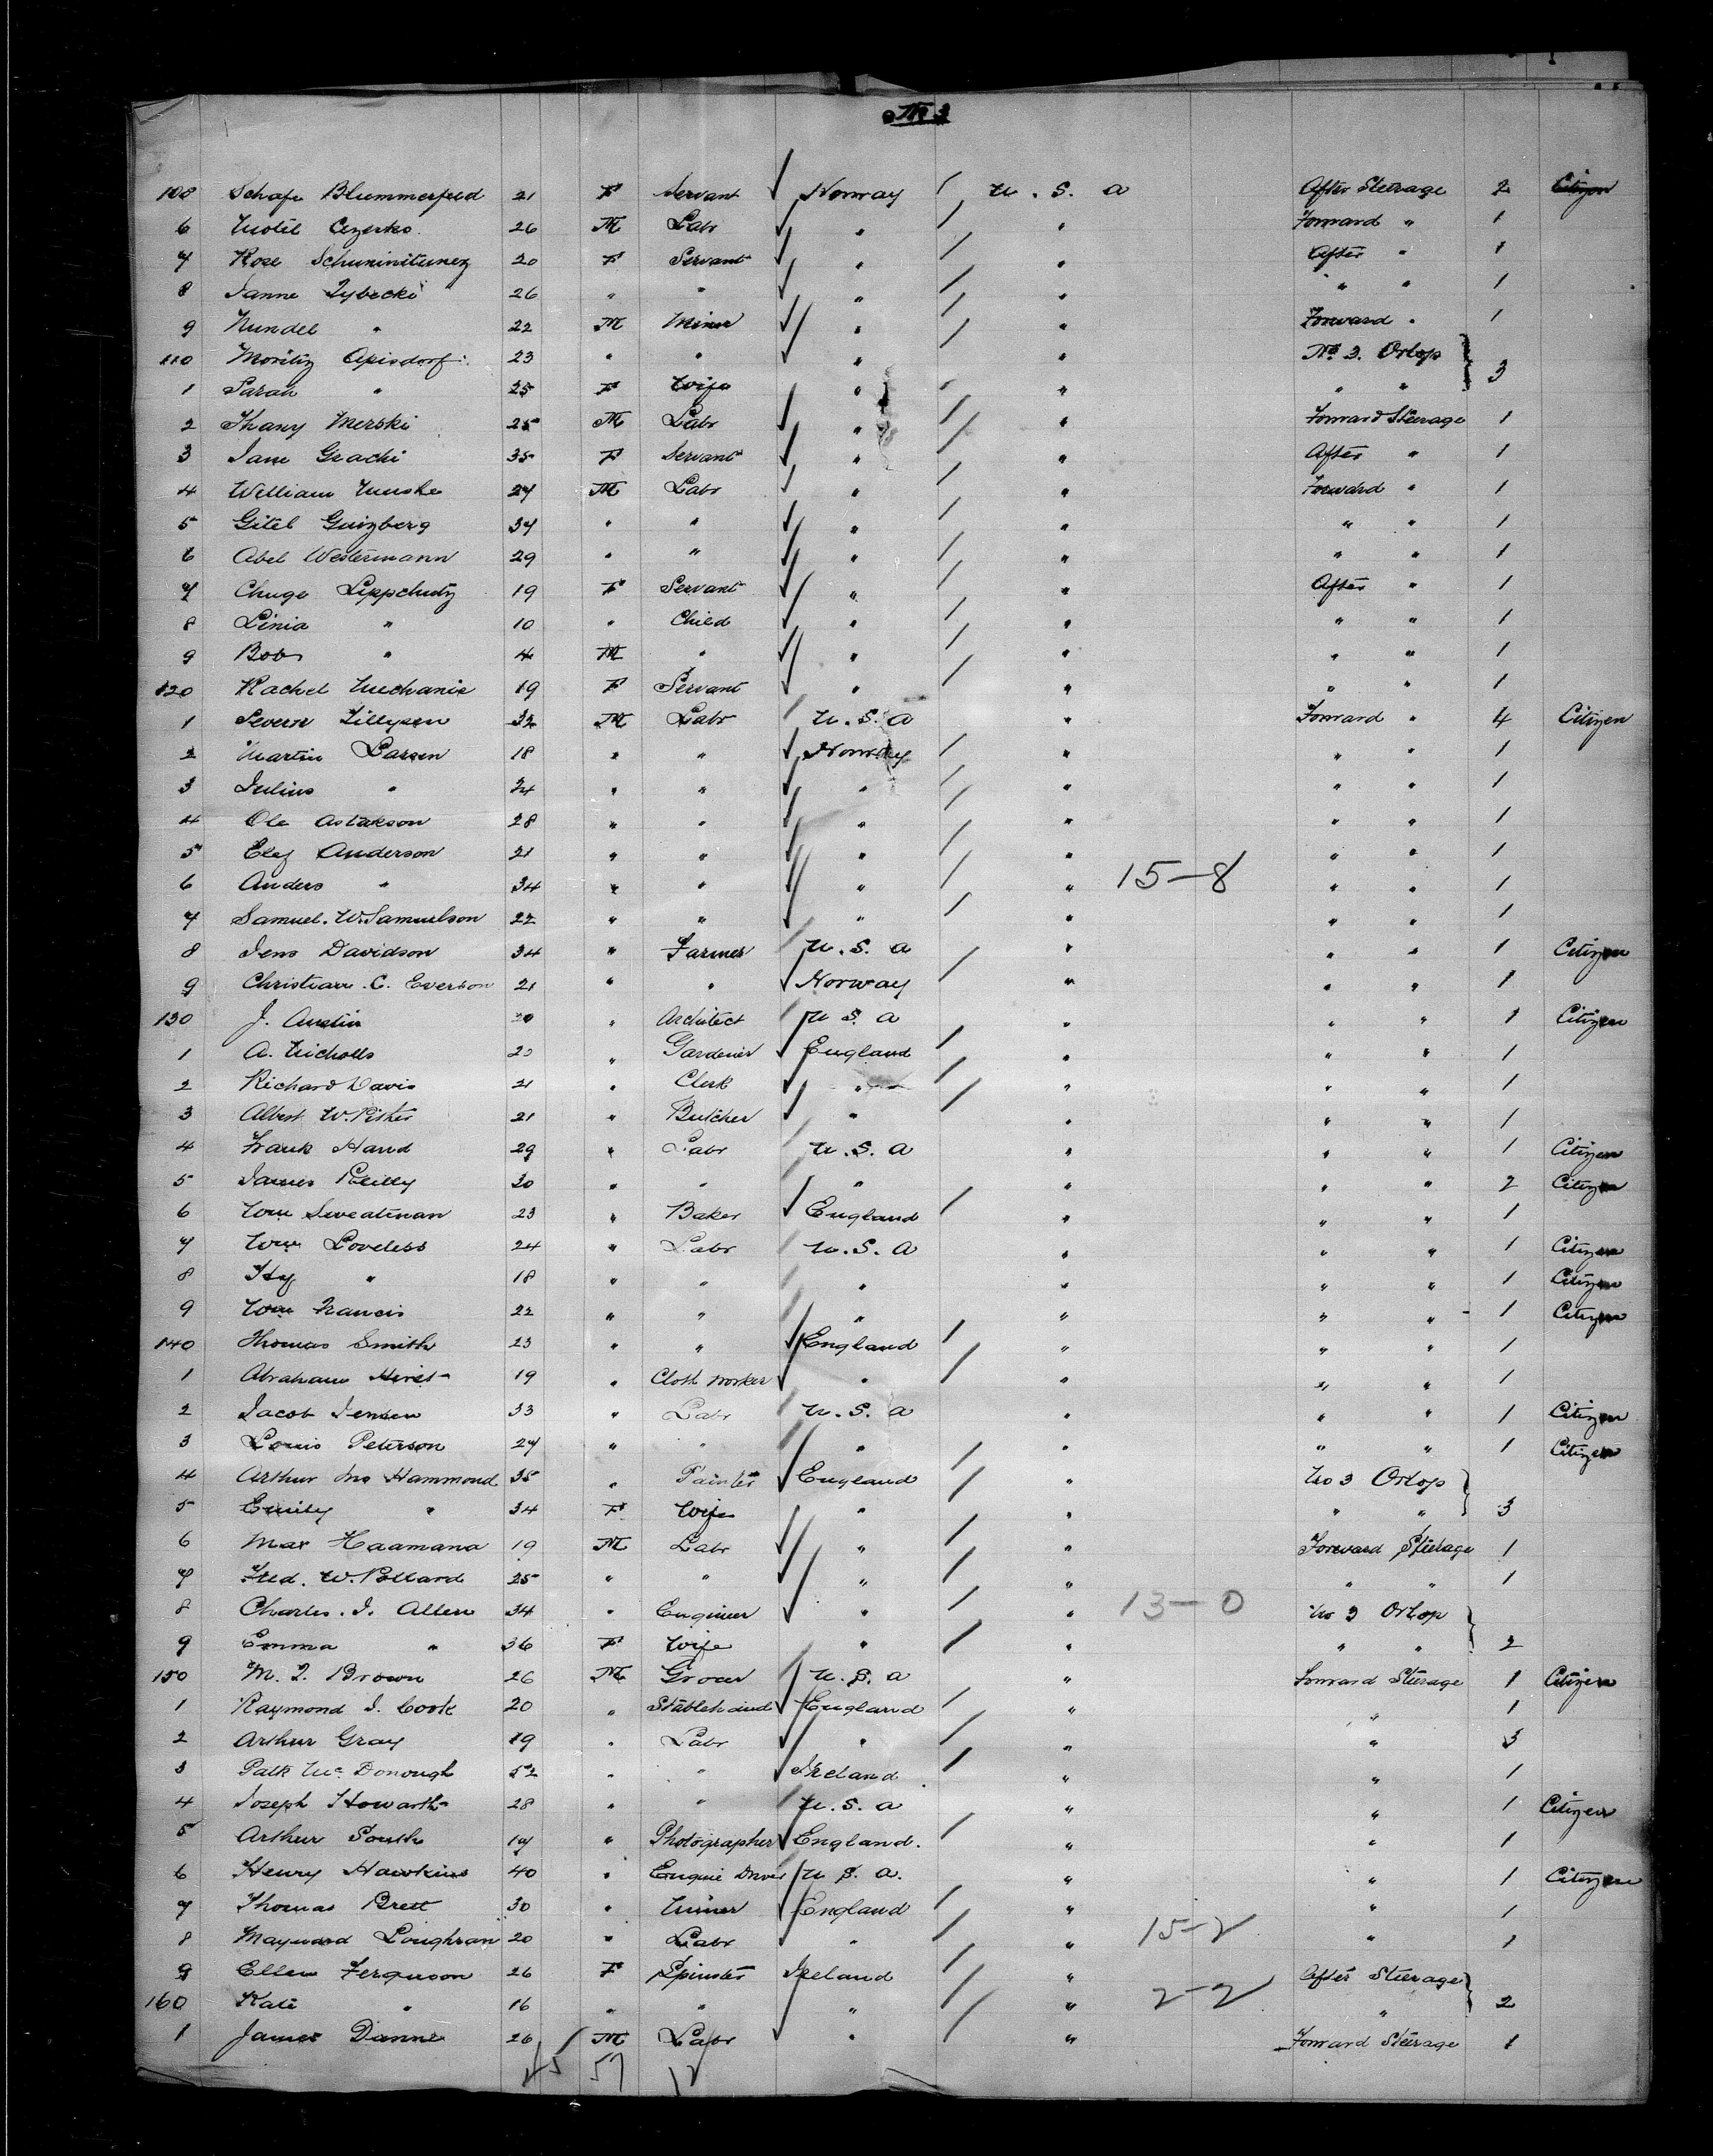 No 3
108 Schafe Blummerfeed 21 F Servant Norway U. S. A After Steerage 2 Citizen
6 26 M Labr " " Forward " 1
7 Rose 20 F Servant " " After " 1
8 Janne Zybecki 26 " " " " " " 1
9 Nundel " 22 M Miner " " Forward " 1
110 Moritz Apisdorf 23 " " " " No 3. Orlop 3
1 Sarah " 25 F Wife " " " "
2 Merski 25 M Labr " " Forward Steerage 1
3 Jane Grachi 35 F Servant " " After " 1
4 William 27 M Labr " " Forward " 1
5 Gitel Guizberg 34 " " " " " " 1
6 Abel Westermann 29 " " " " " " 1
7 Chuge Lippchutz 19 F Servant " " After " 1
8 Linia " 10 " Child " " " " 1
9 Bob " 4 M " " " " " 1
120 Rachel Mechanic 19 F Servant " " " " 1
1 Severn Tillysen 32 M Labr U. S. A " Forward " 4 Citizen
2 Martin Larsen 18 " " Norway " " " 1
3 Julius " 24 " " " " " " 1
4 Ole Astakson 28 " " " " " " 1
5 Elef Anderson 21 " " " " " " 1
6 Anders " 34 " " " " 15-8 " " 1
7 Samuel. W. Samuelson 22 " " " " " " 1
8 Jens Davidson 34 " Farmer U. S. A " " " 1 Citizen
9 Christian. C. Everson 21 " " Norway " " " 1
130 J. Austin " Architect U S. A " " " 1 Citizen
1 A. Nicholls " Gardener England " " " 1
2 Richard Davis 21 " Clerk " " " " 1
3 Albert W. Pither 21 " Butcher " " " " 1
4 Frank Hand 29 " Labr U. S. A " " " 1 Citizen
5 James Reilly 30 " " " " " " 2 Citizen
6 Wm Sweatman 23 " Baker England " " " 1
7 Wm Loveless 24 " Labr U. S. A " " " 1 Citizen
8 Hy " 18 " " " " " " 1 Citizen
9 Wm Francis 22 " " " " " " 1 Citizen
140 Thomas Smith 23 " " England " " " 1
1 Abraham Hirst 19 " Cloth worker " " " " 1
2 Jacob Jensen 33 " Labr U. S. A " " " 1 Citizen
3 Louis Peterson 27 " " " " " " 1 Citizen
4 Arthur Jno Hammond 35 " Painter England " No 3 Orlop 3
5 Emily " 34 F Wife " " " "
6 Max Haamana 19 M Labr " " Forward Steerage 1
7 Fred. W. Pollard 25 " " " " " " 1
8 Charles. J. Allen 34 " Engineer " " 13-0 No 3 Orlop 2
9 Emma " 36 F Wife " " " "
150 M. J. Brown 26 M Grocer U. S. A " Forward Steerage 1 Citizen
1 Raymond J. Cook 20 " Stablehand England " " 1
2 Arthur Gray 19 " Labr " " " 3
3 Patk McDonough 52 " " Ireland " " 1
4 Joseph Howarth 28 " " U. S. A " " 1 Citizen
5 Arthur South 19 " Photographer England. " " 1
6 Henry Hawkins 40 " Engine Driver U S. A. " " 1 Citizen
7 Thomas Brett 30 " Miner England " " 1
8 Maynard Loughran 20 " Labr " " 15-2 " 1
9 Ellen Ferguson 26 F Spinster Ireland " After Steerage 2
160 Kate " 16 " " " " 2-2 "
1 James Danne 26 M Labr " " Forward Steerage 1
45 57 12